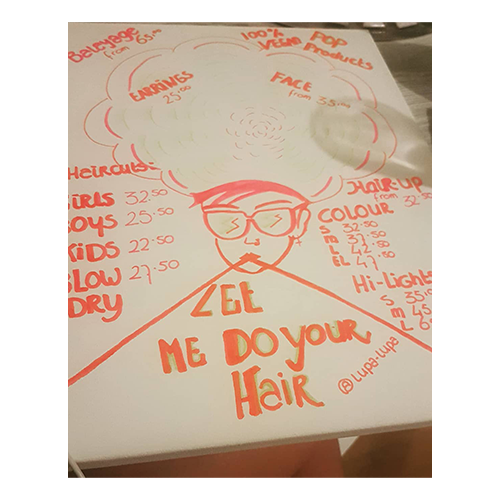 Baleyage
from 65.00
100% POP
VEGAN Products
EARRINGS
25.00
FACE
from 35.00
Haircuts-
GIRLS 32.50
BOYS 25.50
KIDS 22.50
BLOW 27.50
DRY
HAIR-UP
from 32.50
COLOUR
S 32.50
M 37.50
L 42.50
EL 47.50
Hi-Lights
S 35.00
M 45
L
LEE
ME DO YOUR
HAIR
@LUPA-LUPA